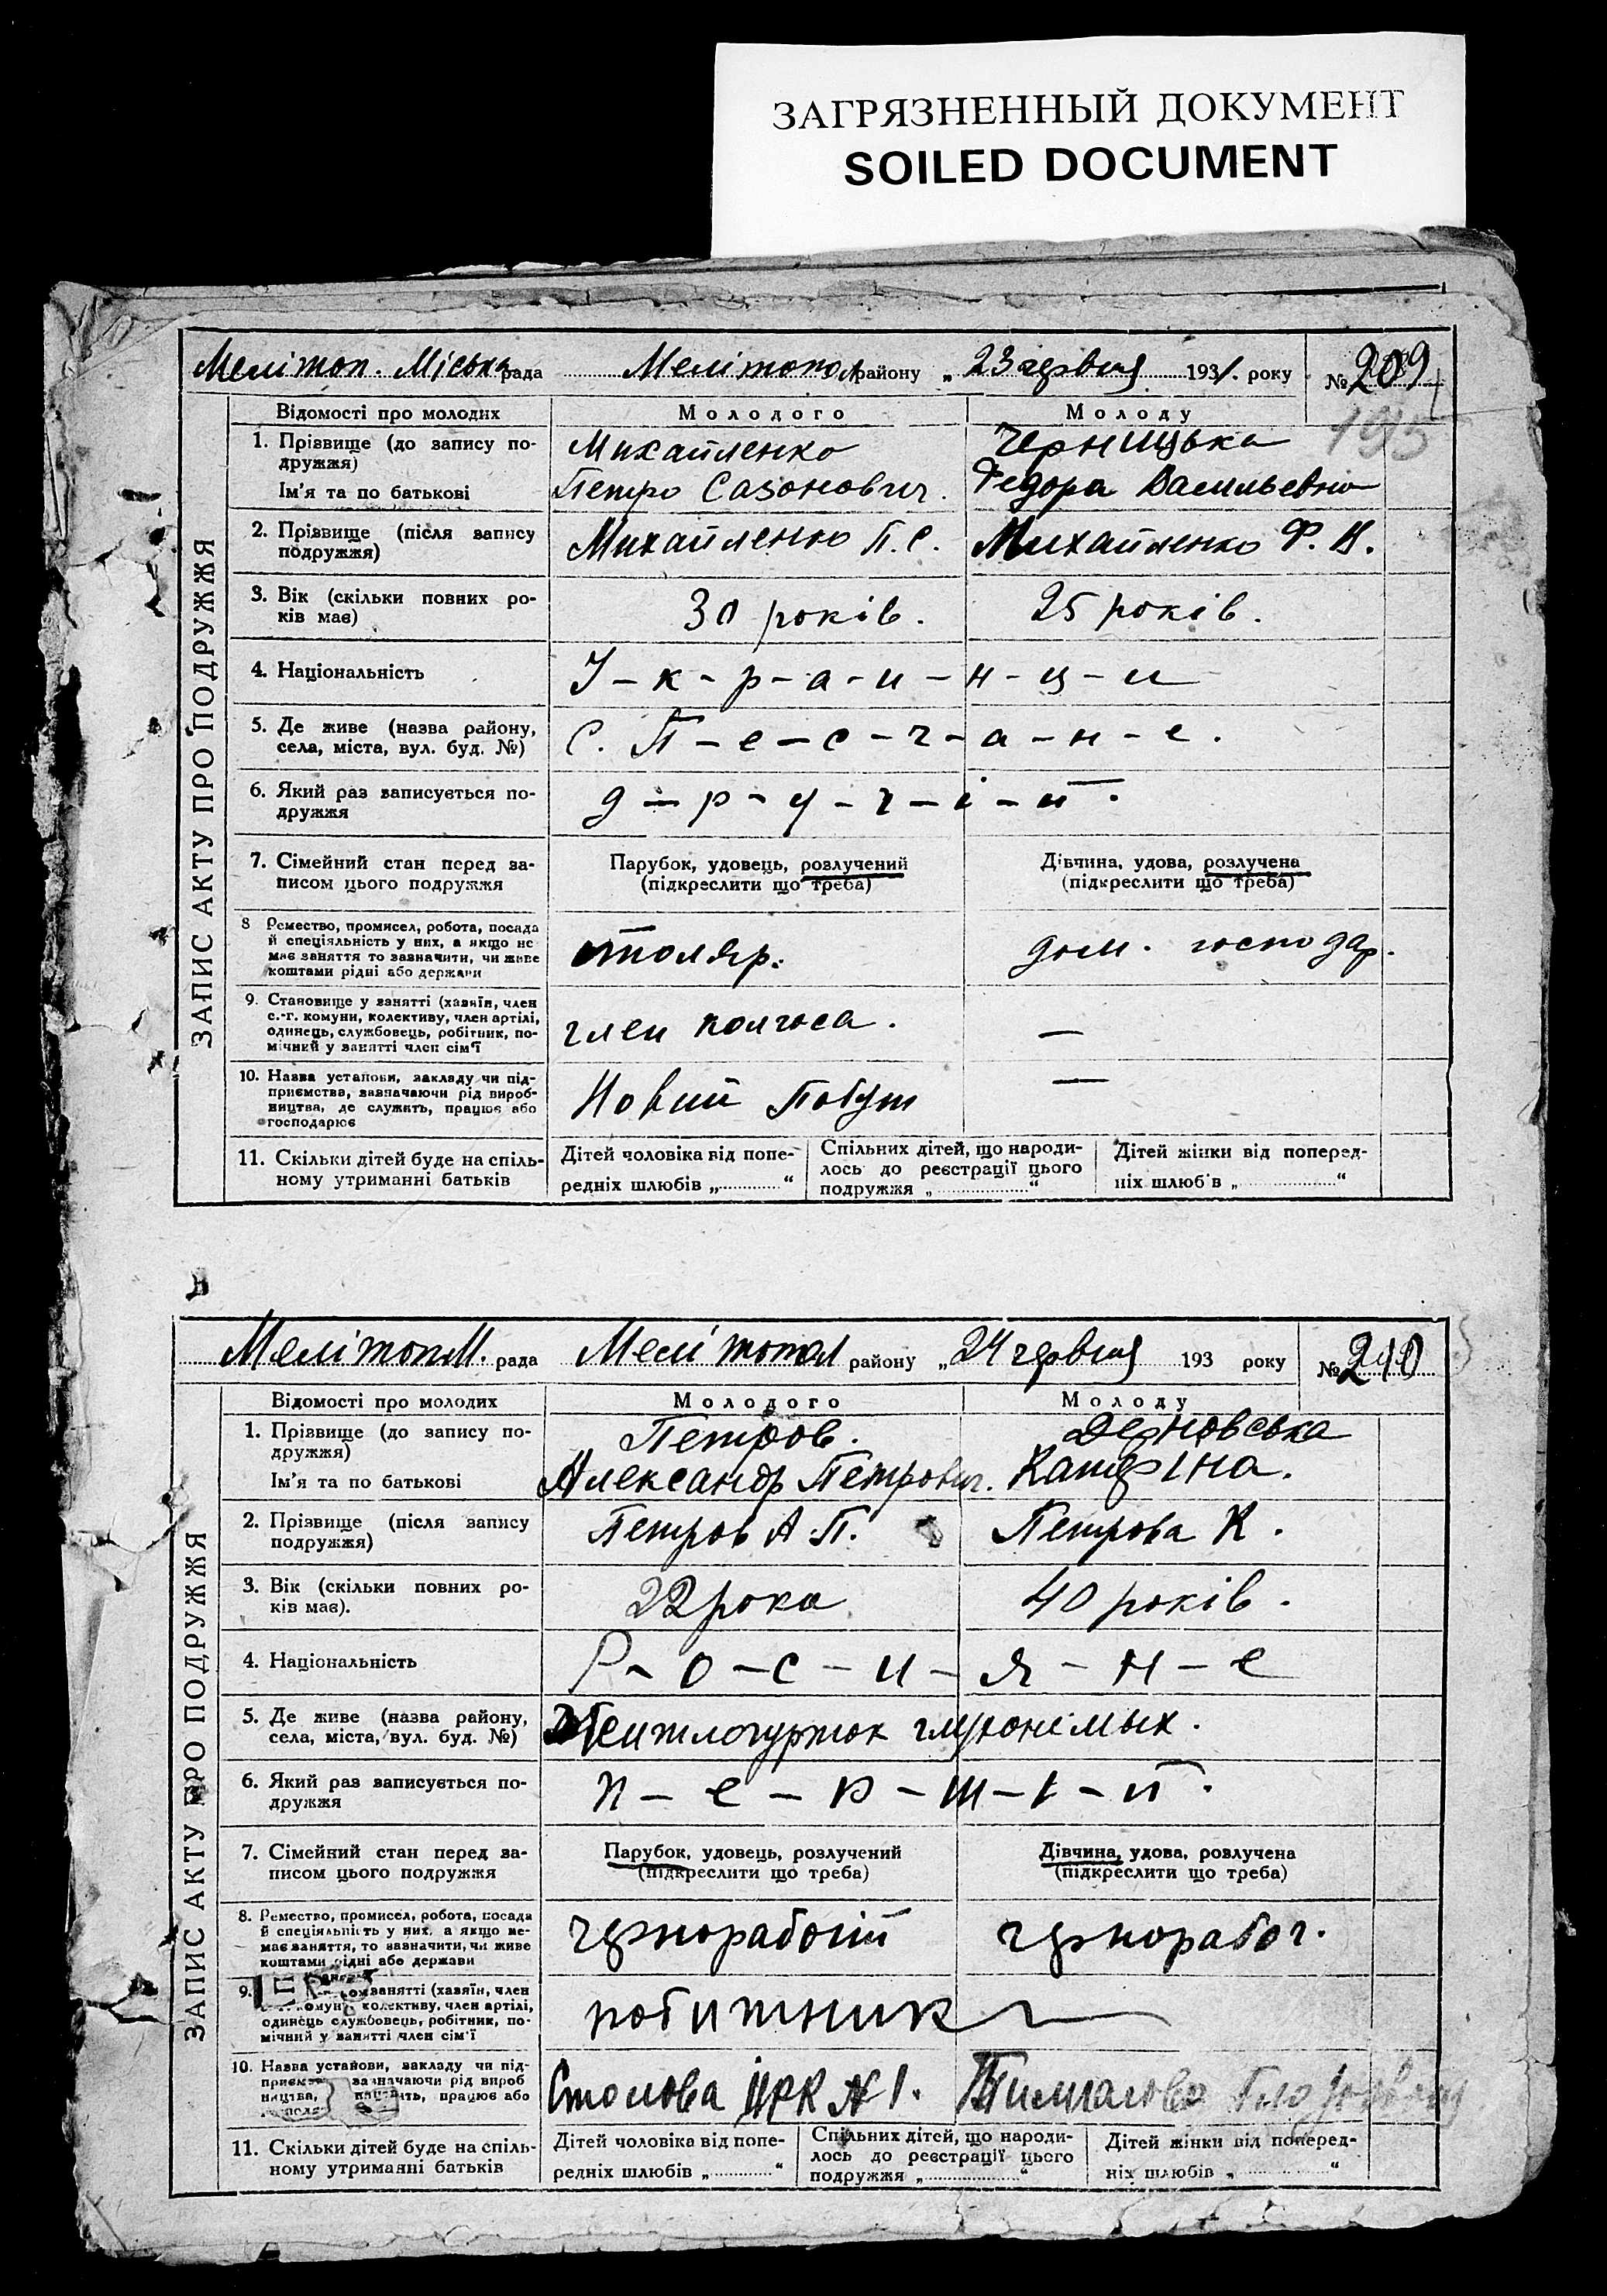 ЗАГРЯЗНЕННЫЙ ДОКУМЕНТ
SOILED DOCUMENT
ЗАПИС АКТУ ПРО ПОДРУЖЖЯ
Меліточ. Міська рада Мелітопол району „ 23 червня 1931. року № 209
195
Відомості про молодих Молодого Молоду
1. Прізвище (до запису по-
дружжя)
Михайленко Черницька
Ім'я та по батькові Петро Сазонович. Федора Васильевна
2. Прізвище (після запису
подружжя)
Михайленко П. С. Михайленко Ф. В.
3. Вік (скільки повних ро-
ків має)
30 років. 25 років.
4. Національність У-к-р-а-и-н-ц-и
5. Де живе (назва району,
села, міста, вул. буд. №)
С. П-е-с-ч-а-н-е.
6. Який раз записується по-
дружжя
д-р-у-г-і-й.
7. Сімейний стан перед за-
писом цього подружжя
Парубок, удовець, розлучений
(підкреслити що треба)
Дівчина, удова, розлучена
(підкреслити що треба)
8 Ремество, промисел, робота, посада
й спеціяльність у них, а якщо не
має заняття то зазначити, чи живе
коштами рідні або держави
столяр. дом. господар.
9. Становище у занятті (хазяїн, член
с.-г. комуни, колективу, член артілі,
одинець, службовець, робітник, по-
мічний у занятті член сім'ї
член колгоса. —
10. Назва установи, закладу чи під-
приємства, зазначаючи рід вироб-
ництва, де служить, працює або
господарює
Новий Побут —
11. Скільки дітей буде на спіль-
ному утриманні батьків
Дітей чоловіка від попе-
редніх шлюбів „ “
Спільних дітей, що народи-
лось до реєстрації цього
подружжя „ “
Дітей жінки від поперед-
ніх шлюбів „ “
ЗАПИС АКТУ ПРО ПОДРУЖЖЯ
Мелітоп М. рада Мелітопол району „ 24 червня 193 року № 210
Відомості про молодих Молодого Молоду
1. Прізвище (до запису по-
дружжя)
Петров. Дерновська
Ім'я та по батькові Александр Петрович. Катеріна.
2. Прізвище (після запису
подружжя)
Петров А П. Петрова К.
3. Вік (скільки повних ро-
ків має).
22 рока 40 років.
4. Національність Р-о-с-и-я-н-е
5. Де живе (назва району,
села, міста, вул. буд. №)
глухонемых.
6. Який раз записується по-
дружжя
п-е-р-ш-і-й.
7. Сімейний стан перед за-
писом цього подружжя
Парубок, удовець, розлучений
(підкреслити що треба)
Дівчина, удова, розлучена
(підкреслити що треба)
8. Ремество, промисел, робота, посада
й спеціяльність у них, а якщо не-
має заняття, то зазначити, чи живе
коштами рідні або держави
чернорабочій чернорабоч.
9. занятті (хазяїн, член
комуни, колективу, член артілі,
одинець службовець, робітник, по-
мічний у занятті член сім'ї
робитник
10. Назва установи, закладу чи під-
зазначаючи рід вироб
ництва, працює або
Столова ЦРК № 1.
11. Скільки дітей буде на спіль-
ному утриманні батьків
Дітей чоловіка від попе-
редніх шлюбів „ “
Спільних дітей, що народи-
лось до реєстрації цього
подружжя „ “
Дітей жінки від поперед-
ніх шлюбів „ “